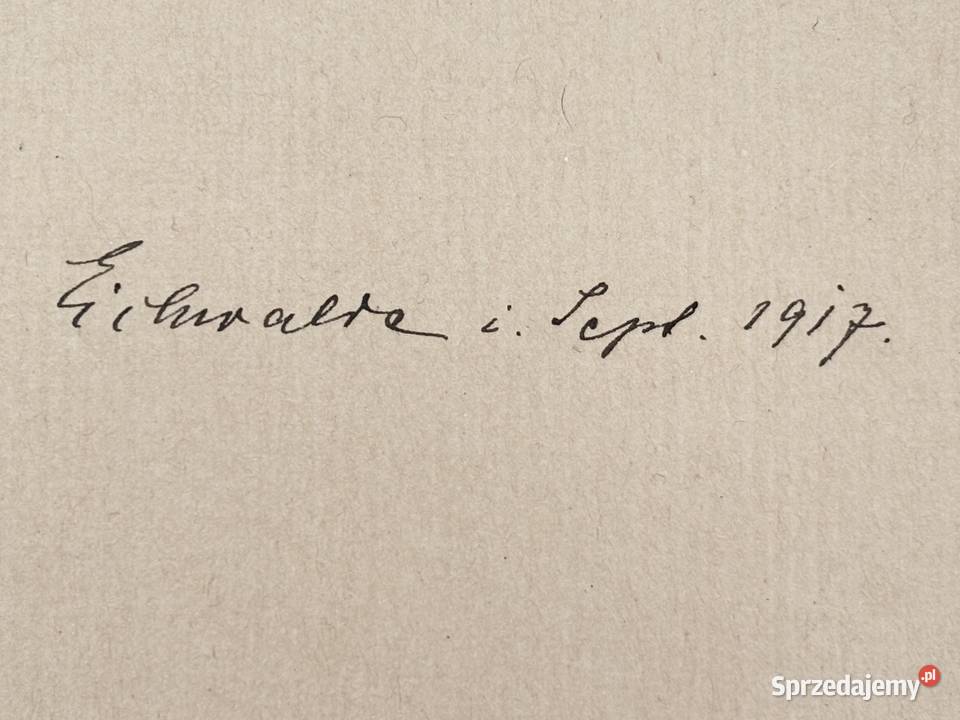 Eichwalde i. Sept. 1917.
Sprzedajemy.pl